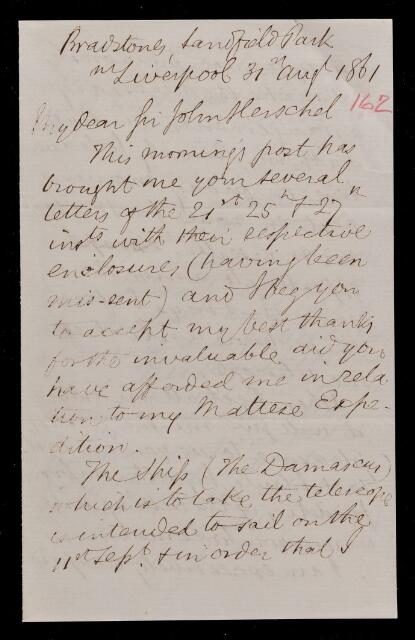 Bradstones, Sandfield Park
nr Liverpool 31st augt 1861
My dear Sir John Herschel 162
This mornings post has
brought me your several
letters of the 21st 25th & 27th
insts with their respective
enclosures (having been
mis-sent) and I beg you
to accept my best thanks
for the invaluable aid you
have afforded me in rela
tion to my Maltese Expe-
dition.
The Ship (The Damascus)
which is to take the telescope
is intended to sail on the
11th Septr & in order that I